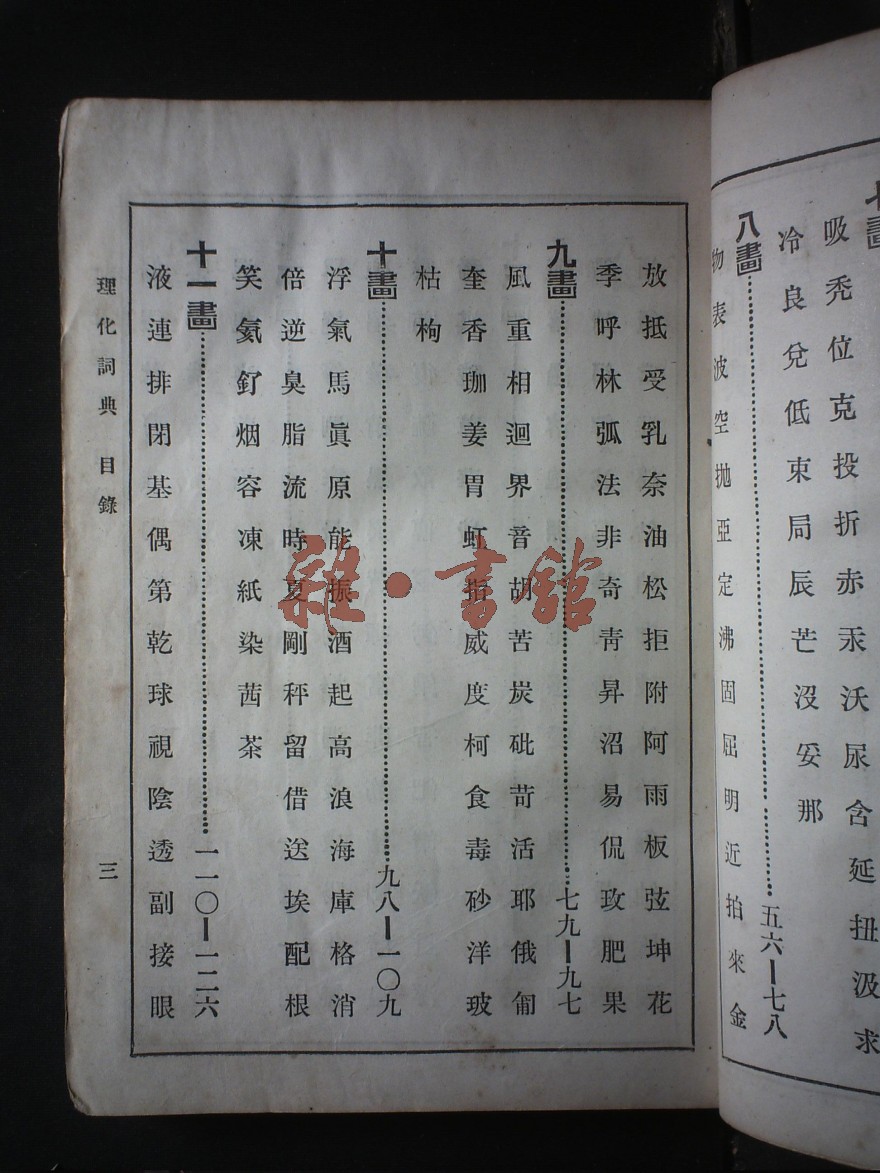 七畫
吸禿位克投折赤汞沃尿含延扭汲求
冷良兌低束局辰芒沒妥那
八畫………五六—七八
物表波空拋亞定沸固屈明近拍來金
放抵受乳奈油松拒附阿雨板弦坤花
季呼林弧法非奇靑昇沼易侃玫肥果
九畫………七九—九七
風重相迴界音胡苦炭砒苛活耶俄匍
奎香珈姜胃虹指威度柯食毒砂洋玻
枯枸
十畫………九八—一〇九
浮氣馬眞原能振酒起高浪海庫格消
倍逆臭脂流時夏剛秤留借送埃配根
笑氨釕烟容凍紙染茜茶
十一畫………一一〇—一二六
液連排閉基偶第乾球視陰透副接眼
理化詞典 目錄
三
雜·書館